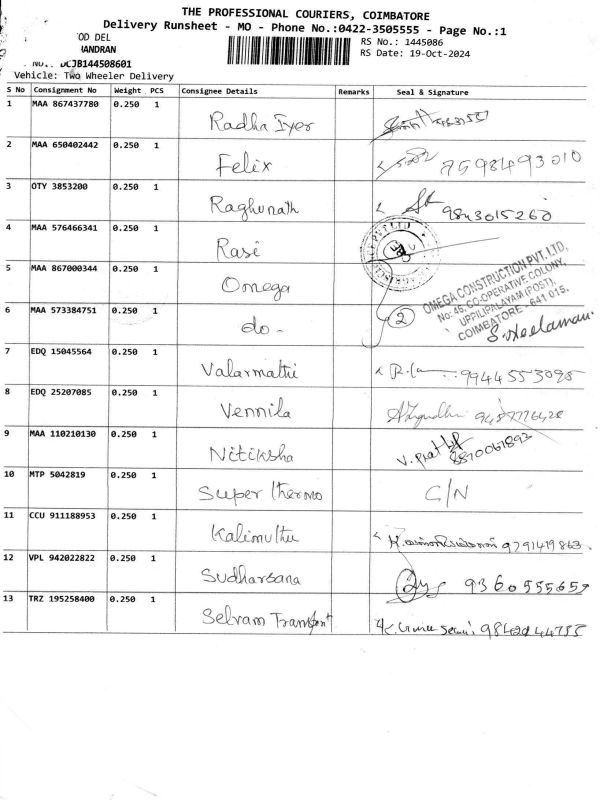 THE PROFESSIONAL COURIERS, COIMBATORE
Delivery Runsheet - MO - Phone No.:0422-3505555 - Page No.:1
OD DEL
HANDRAN
RS No.: 1445086
RS Date: 19-Oct-2024
DCJB144508601
Vehicle: Two Wheeler Delivery
S No Consignment No Weight PCS Consignee Details Remarks Seal & Signature
1 MAA 867437780 0.250 1 Radha Iyer
2 MAA 650402442 0.250 1 Felix 7598493010
3 OTY 3853200 0.250 1 Raghunath 9843015260
4 MAA 576466341 0.250 1 Rasi
5 MAA 867000344 0.250 1 Omega
OMEGA CONSTRUCTION PVT. LTD,
No: 45, CO-OPERATIVE COLONY,
UPPILIPALAYAM (POST),
COIMBATORE - 641 015.
6 MAA 573384751 0.250 1 do - 2
7 EDQ 15045564 0.250 1 Valarmathi 9944553095
8 EDQ 25207085 0.250 1 Vennila
9 MAA 110210130 0.250 1 Nitiksha 8870061893
10 MTP 5042819 0.250 1 Super thermo C/N
11 CCU 911188953 0.250 1 Kalimuthu 9791419863
12 VPL 942022822 0.250 1 Sudharsana 9360555657
13 TRZ 195258400 0.250 1 Selvam Transport